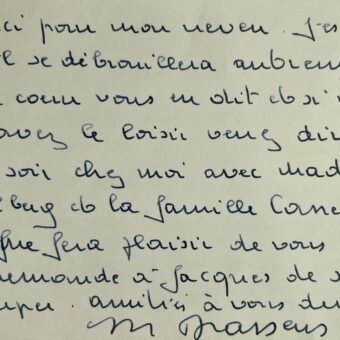 ci pour mon neveu. J'es
il se débrouillera autrem
cœur vous en dit et si v
avez le loisir venez din
soir chez moi avec Mad
et la famille Casse
fera plaisir de vous
demande à Jacques de s
uper. amitiés à vous deu
M Brassens